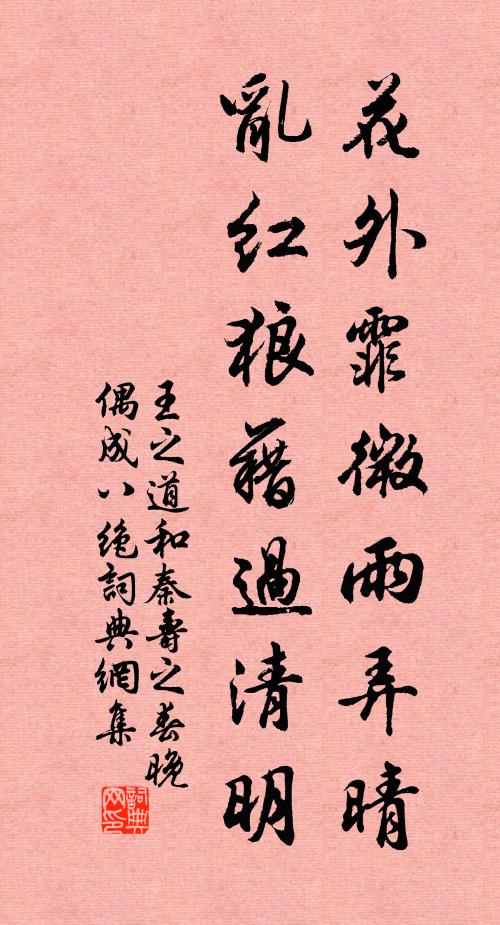 花外霏微雨弄晴
亂紅狼藉過清明
王之道和秦壽之春晚
偶成八絕詞典網集
詞典
网印